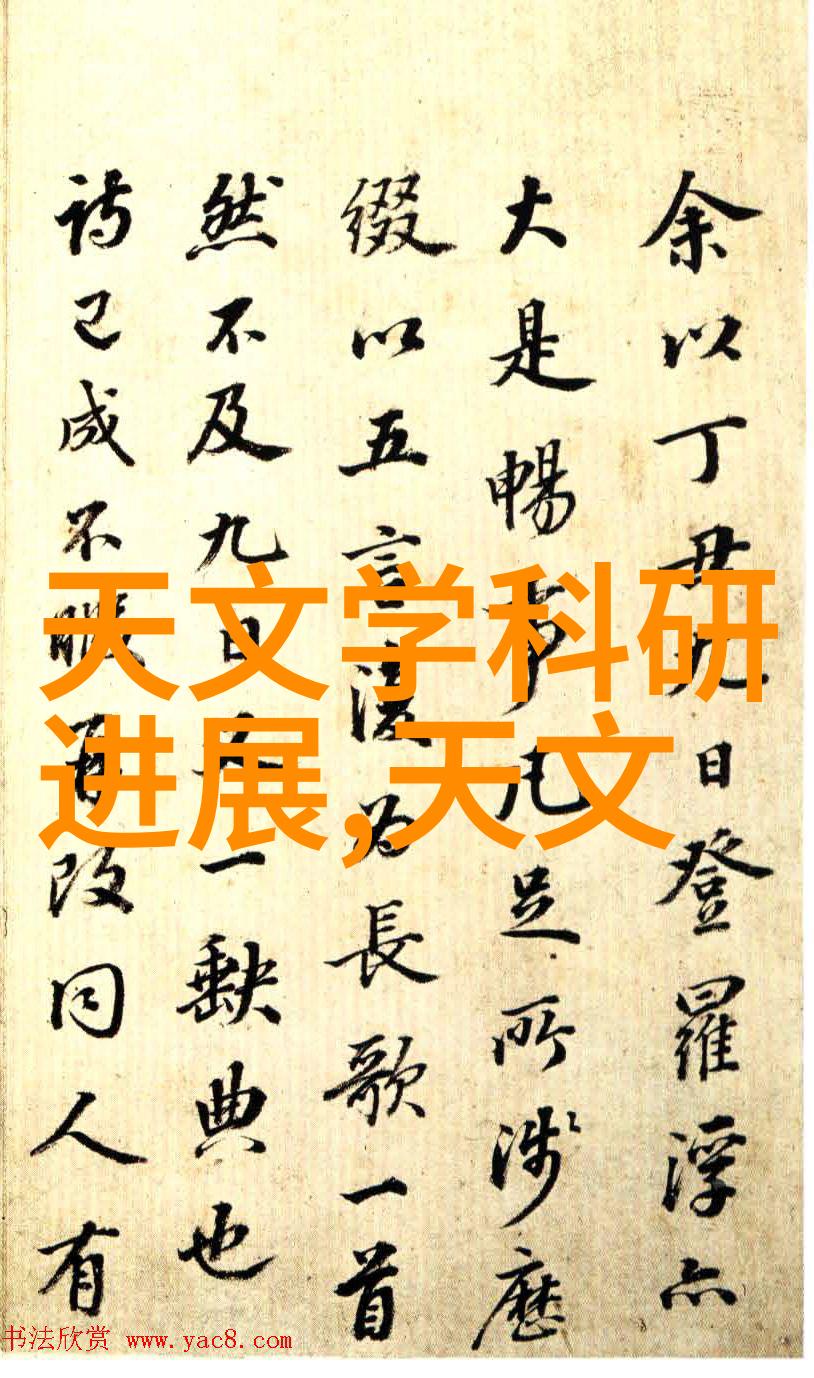 余以丁丑九日登羅浮亦
大是暢事凡足所涉歷
綴以五言復为長歌一首
然不及九日一缺典也
詩已成不暇再改同人有
天文学科研
进展,天文
书法欣赏 www.yac8.com